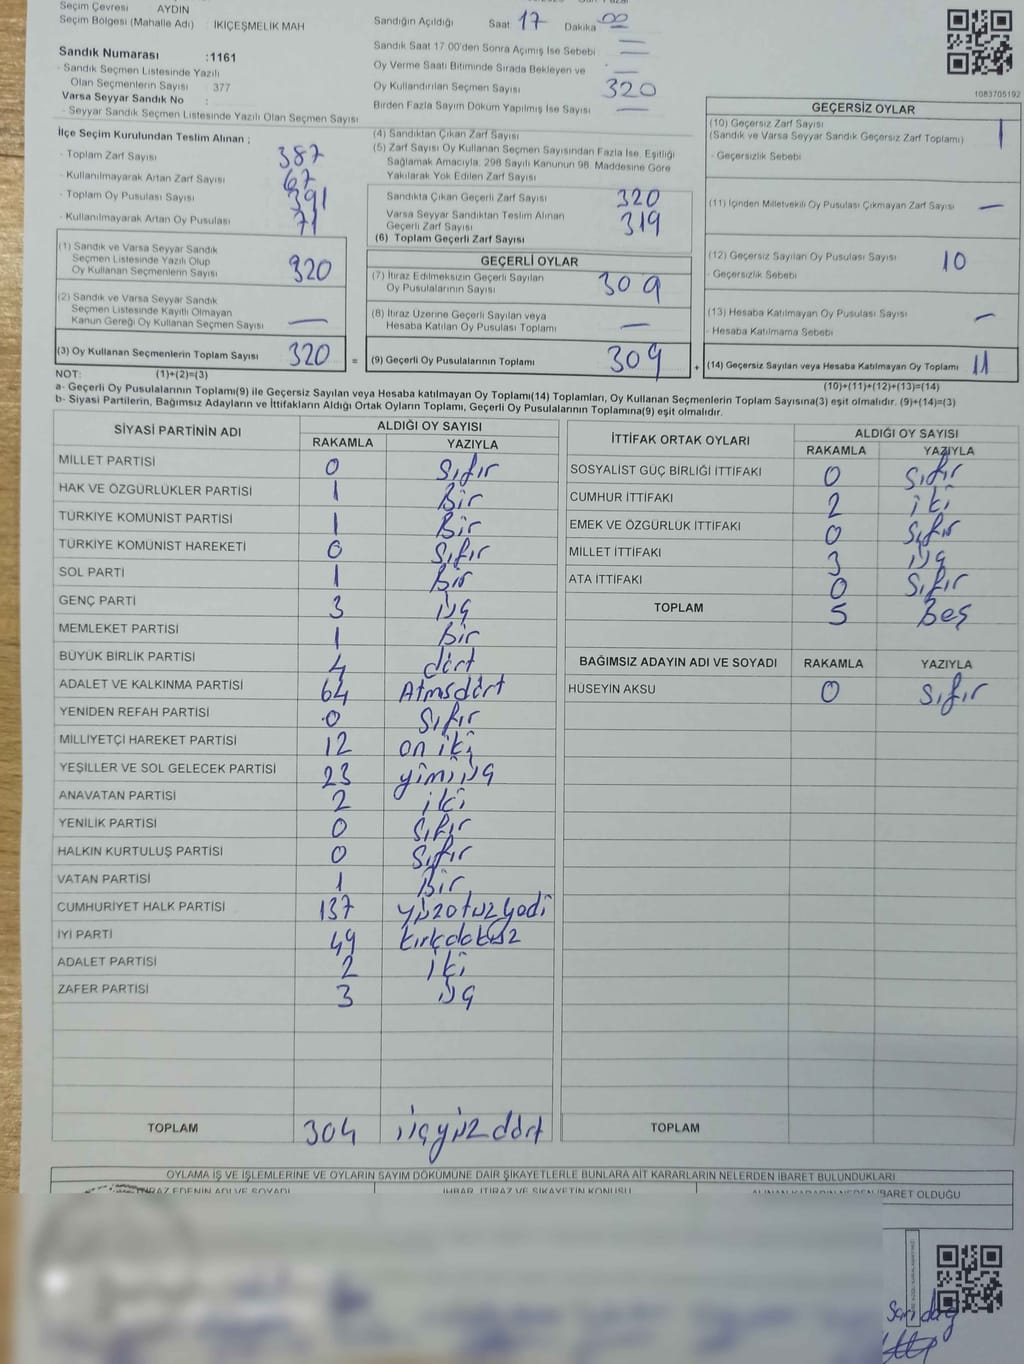 Seçim Çevresi AYDIN
Seçim Bölgesi (Mahalle Adı) : İKİÇEŞMELİK MAH
Sandık Numarası :1161
- Sandık Seçmen Listesinde Yazılı
Olan Seçmenlerin Sayısı : 377
Varsa Seyyar Sandık No :
- Seyyar Sandık Seçmen Listesinde Yazılı Olan Seçmen Sayısı
Sandığın Açıldığı Saat 17 Dakika 00
Sandık Saat 17:00'den Sonra Açılmış İse Sebebi : —
Oy Verme Saati Bitiminde Sırada Bekleyen ve —
Oy Kullandırılan Seçmen Sayısı 320
Birden Fazla Sayım Döküm Yapılmış İse Sayısı —
1083705192
İlçe Seçim Kurulundan Teslim Alınan ;
- Toplam Zarf Sayısı 387
- Kullanılmayarak Artan Zarf Sayısı 67
- Toplam Oy Pusulası Sayısı 391
- Kullanılmayarak Artan Oy Pusulası 71
(1) Sandık ve Varsa Seyyar Sandık
Seçmen Listesinde Yazılı Olup
Oy Kullanan Seçmenlerin Sayısı 320
(2) Sandık ve Varsa Seyyar Sandık
Seçmen Listesinde Kayıtlı Olmayan
Kanun Gereği Oy Kullanan Seçmen Sayısı —
(3) Oy Kullanan Seçmenlerin Toplam Sayısı 320 =
(4) Sandıktan Çıkan Zarf Sayısı
(5) Zarf Sayısı Oy Kullanan Seçmen Sayısından Fazla İse, Eşitliği
Sağlamak Amacıyla, 298 Sayılı Kanunun 98. Maddesine Göre
Yakılarak Yok Edilen Zarf Sayısı
Sandıkta Çıkan Geçerli Zarf Sayısı 320
Varsa Seyyar Sandıktan Teslim Alınan
Geçerli Zarf Sayısı 319
(6) Toplam Geçerli Zarf Sayısı
GEÇERLİ OYLAR
(7) İtiraz Edilmeksizin Geçerli Sayılan
Oy Pusulalarının Sayısı 309
(8) İtiraz Üzerine Geçerli Sayılan veya
Hesaba Katılan Oy Pusulası Toplamı —
(9) Geçerli Oy Pusulalarının Toplamı 309 +
GEÇERSİZ OYLAR
(10) Geçersiz Zarf Sayısı 1
(Sandık ve Varsa Seyyar Sandık Geçersiz Zarf Toplamı)
- Geçersizlik Sebebi
(11) İçinden Milletvekili Oy Pusulası Çıkmayan Zarf Sayısı —
(12) Geçersiz Sayılan Oy Pusulası Sayısı 10
- Geçersizlik Sebebi
(13) Hesaba Katılmayan Oy Pusulası Sayısı —
- Hesaba Katılmama Sebebi
(14) Geçersiz Sayılan veya Hesaba Katılmayan Oy Toplamı 11
NOT: (1)+(2)=(3) (10)+(11)+(12)+(13)=(14)
a- Geçerli Oy Pusulalarının Toplamı(9) ile Geçersiz Sayılan veya Hesaba katılmayan Oy Toplamı(14) Toplamları, Oy Kullanan Seçmenlerin Toplam Sayısına(3) eşit olmalıdır. (9)+(14)=(3)
b- Siyasi Partilerin, Bağımsız Adayların ve İttifakların Aldığı Ortak Oyların Toplamı, Geçerli Oy Pusulalarının Toplamına(9) eşit olmalıdır.
SİYASİ PARTİNİN ADI ALDIĞI OY SAYISI
RAKAMLA YAZIYLA
MİLLET PARTİSİ 0 Sıfır
HAK VE ÖZGÜRLÜKLER PARTİSİ 1 Bir
TÜRKİYE KOMÜNİST PARTİSİ 1 Bir
TÜRKİYE KOMÜNİST HAREKETİ 0 Sıfır
SOL PARTİ 1 Bir
GENÇ PARTİ 3 üç
MEMLEKET PARTİSİ 1 Bir
BÜYÜK BİRLİK PARTİSİ 4 dört
ADALET VE KALKINMA PARTİSİ 64 Atmsdört
YENİDEN REFAH PARTİSİ 0 Sıfır
MİLLİYETÇİ HAREKET PARTİSİ 12 on iki
YEŞİLLER VE SOL GELECEK PARTİSİ 23 yimi üç
ANAVATAN PARTİSİ 2 iki
YENİLİK PARTİSİ 0 Sıfır
HALKIN KURTULUŞ PARTİSİ 0 Sıfır
VATAN PARTİSİ 1 Bir
CUMHURİYET HALK PARTİSİ 137 yüzotuzyedi
İYİ PARTİ 49 kırkdokuz
ADALET PARTİSİ 2 iki
ZAFER PARTİSİ 3 üç
TOPLAM 304 üçyüz dört
İTTİFAK ORTAK OYLARI ALDIĞI OY SAYISI
RAKAMLA YAZIYLA
SOSYALİST GÜÇ BİRLİĞİ İTTİFAKI 0 Sıfır
CUMHUR İTTİFAKI 2 iki
EMEK VE ÖZGÜRLÜK İTTİFAKI 0 Sıfır
MİLLET İTTİFAKI 3 üç
ATA İTTİFAKI 0 Sıfır
TOPLAM 5 Beş
BAĞIMSIZ ADAYIN ADI VE SOYADI RAKAMLA YAZIYLA
HÜSEYİN AKSU 0 Sıfır
TOPLAM
OYLAMA İŞ VE İŞLEMLERİNE VE OYLARIN SAYIM DÖKÜMÜNE DAİR ŞİKAYETLERLE BUNLARA AİT KARARLARIN NELERDEN İBARET BULUNDUKLARI
İTİRAZ EDENİN ADI VE SOYADI İHBAR, İTİRAZ VE ŞİKAYETİN KONUSU İBARET OLDUĞU